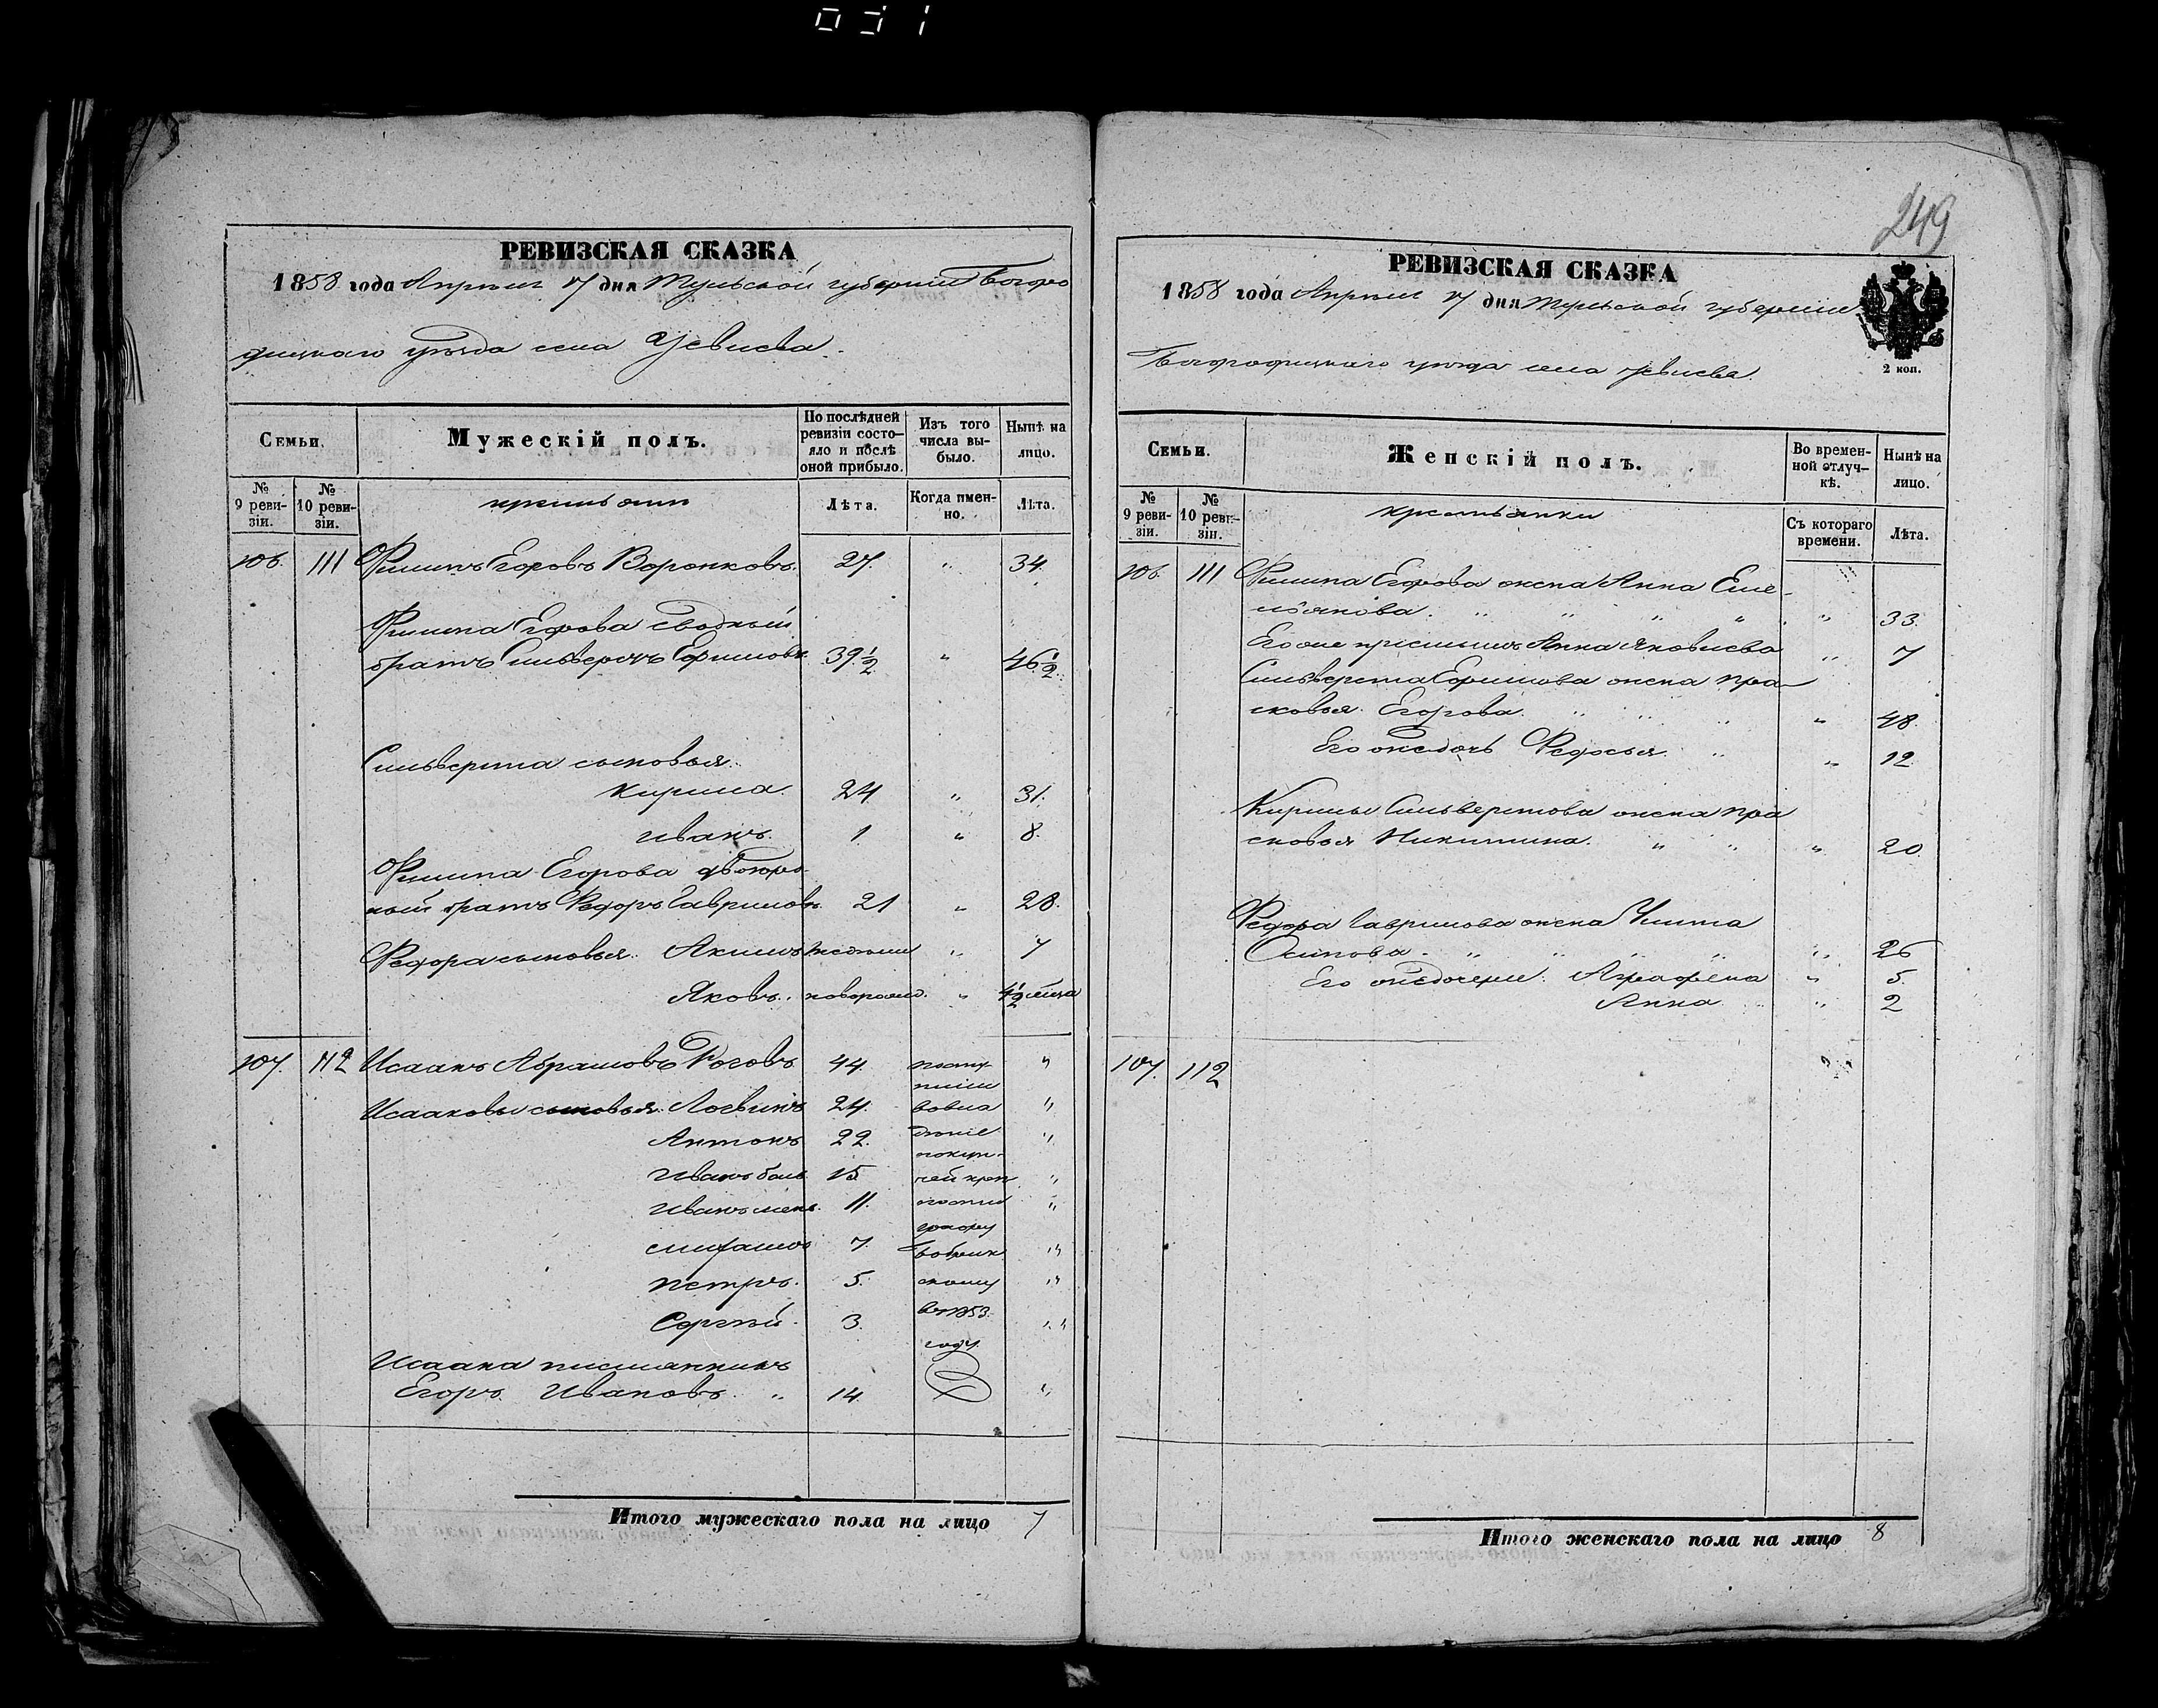 031
249
РЕВИЗСКАЯ СКАЗКА
1858 года Апрѣля 7 дня Тульской губерніи Богоро
дицкаго уѣзда села
Семьи.
Мужескій полъ.
По послѣдней ревизіи состо–яло и послѣ оной прибыло.
Изъ того числа вы–было.
Нынѣ на лицо.
№ 9 реви–зіи.
№ 10 реви–зіи.
крестьяне
Лѣта.
Когда имен–но.
Лѣта.
106. 111 Филипъ Егоровъ Воронковъ. 27. " 34.
Филипа Егорова сводный
братъ Сильверстъ Ефимовъ. 39 1/2 " 46 1/2.
Сильверста сыновья.
Кирила. 24 " 31.
Иванъ. 1. " 8.
Филипа Егорова двоюро–
ный братъ Федоръ Гавриловъ. 21 " 28.
Федора сыновья. Акимъ " 7
Яковъ. новорожд. " 4 1/2 мѣсяца
107. 112 Исаакъ Абрамовъ Роговъ 44. "
поступ
пили
Исааковы сыновья. Логвинъ 24. вовла "
Антонъ 22. дѣніе "
покуп–
Иванъ боль. 15 чей крѣп "
Иванъ мень. 11. остью "
графу
7. Бобрин "
Петръ. 5. скому "
Сергѣй. 3. въ 1853. "
году.
Исаака племянникъ
Егоръ Ивановъ. " 14. "
Итого мужескаго пола на лицо 7
РЕВИЗСКАЯ СКАЗКА
1858 года Апрѣля 7 дня Тульской губерніи
2 коп.
Богородицкаго уѣзда села
Семьи.
Женскій полъ.
Во времен–ной отлуч–кѣ.
Нынѣ на лицо.
№ 9 реви–зіи.
№ 10 реви–зіи.
крестьянки
Съ котораго времени.
Лѣта.
106. 111 Филипа Егорова жена Анна Еме–
льянова. " " " " " 33.
Его же Анна Яковлева " 7
Сильверста Ефимова жена Пра–
сковья Егорова. " " " " 48.
Его же дочь Федосья. " " 12.
Кирилы Сильверстова жена Пра
сковья Никитина. " " " 20.
Федора Гаврилова жена Улита
Осипова. " " " " " 26
Его же дочери: Аграфена " 5.
Анна " 2
107. 112 "
Итого женскаго пола на лицо 8